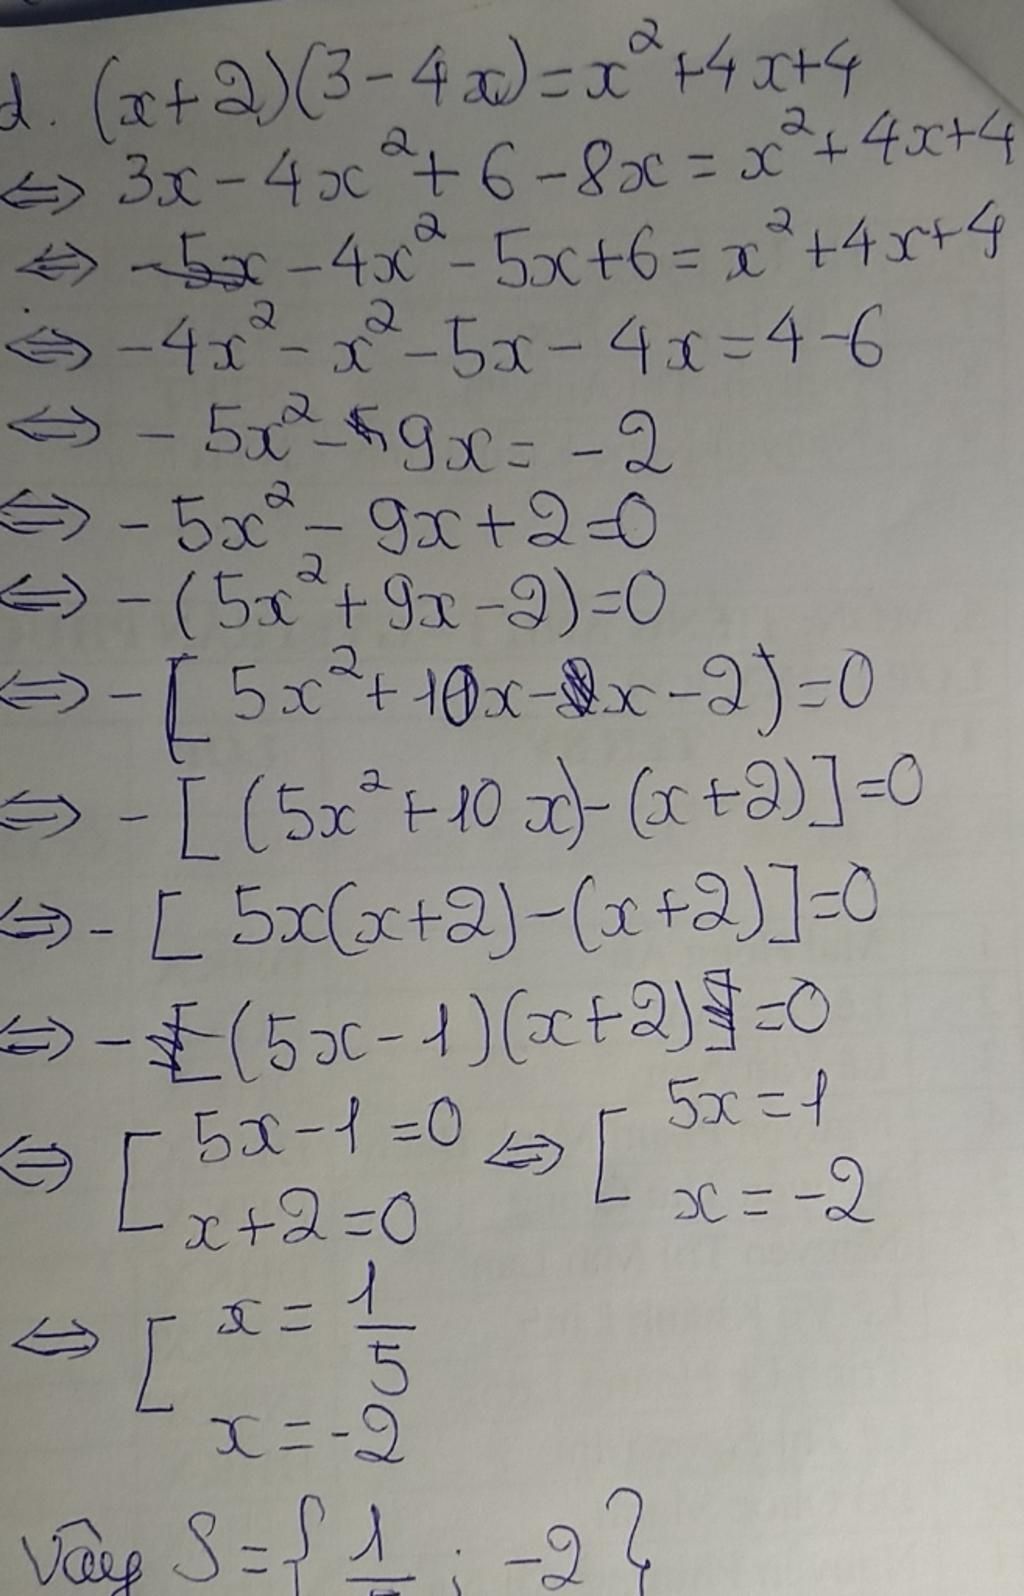 d. (x+2)(3-4x)=x²+4x+4
⇔ 3x-4x²+6-8x=x²+4x+4
⇔ -4x²-5x+6=x²+4x+4
⇔ -4x²-x²-5x-4x=4-6
⇔ -5x²-9x=-2
⇔ -5x²-9x+2=0
⇔ -(5x²+9x-2)=0
⇔ -[5x²+10x-x-2)=0
⇔ -[(5x²+10x)-(x+2)]=0
⇔ -[5x(x+2)-(x+2)]=0
⇔ -(5x-1)(x+2)=0
⇔ [ 5x-1=0 ⇔ [ 5x=1
x+2=0 x=-2
⇔ [ x=1/5
x=-2
Vậy S={1/5; -2}